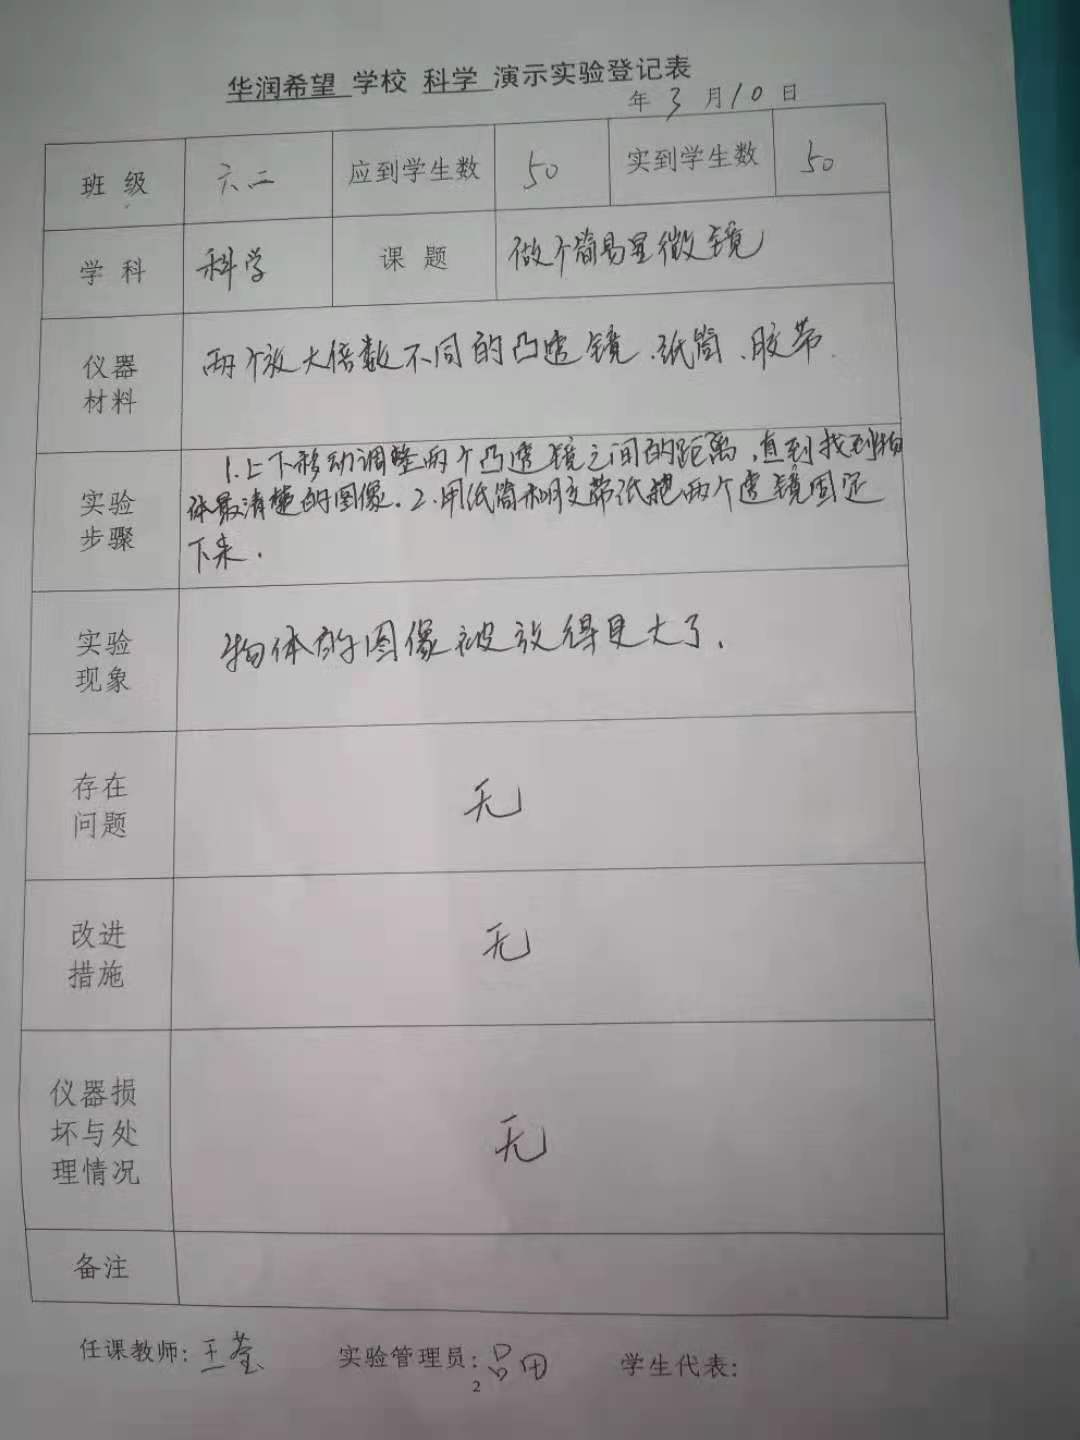 华润希望 学校 科学 演示实验登记表
年 3 月 10 日
班 级 六二 应到学生数 50 实到学生数 50
学 科 科学 课 题 做个简易显微镜
仪器
材料
两个放大倍数不同的凸透镜、纸筒、胶带.
实验
步骤
1.上下移动调整两个凸透镜之间的距离,直到找到物
体最清楚的图像.2.用纸筒和胶带纸把两个透镜固定
下来.
实验
现象
物体的图像被放得更大了.
存在
问题
无
改进
措施
无
仪器损
坏与处
理情况
无
备注
任课教师: 王莹 实验管理员: 吕田 学生代表:
2